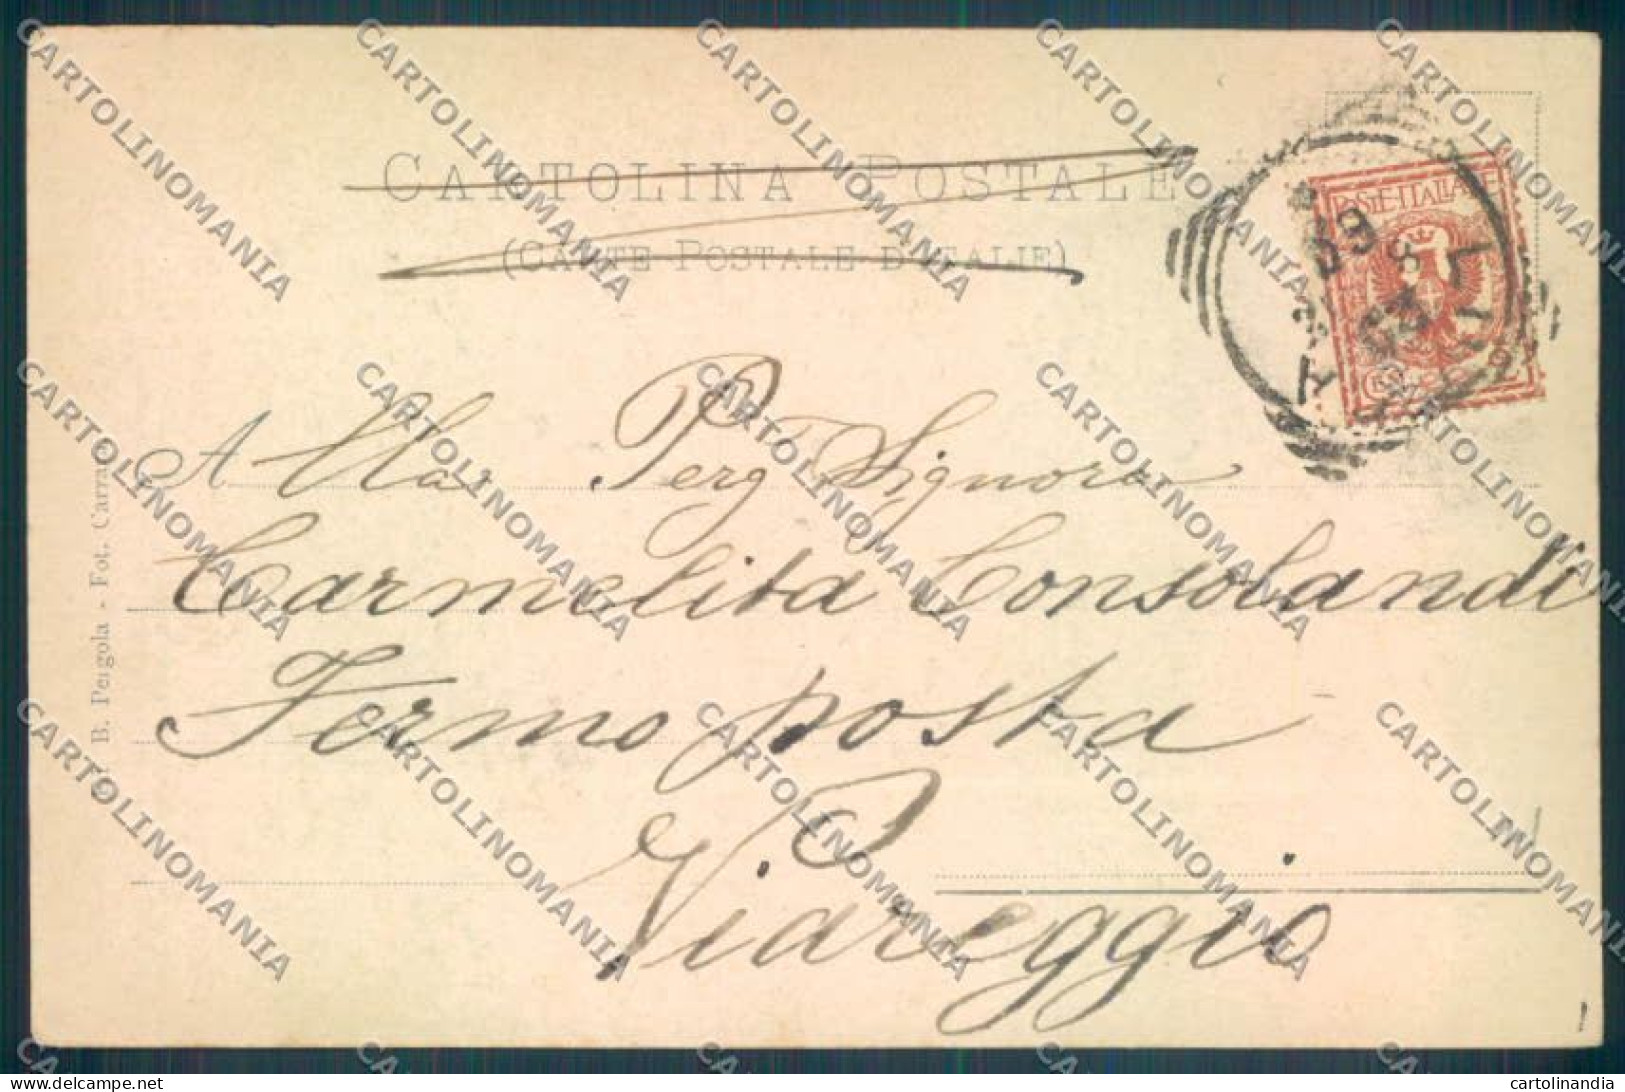 CARTOLINA POSTALE
(CARTE POSTALE D'ITALIE)
POSTE ITALIANE
Alla Perg Signora
Carmelita Consolandi
Fermo posta
Viareggio
B. Pergola - Fot. Carrara
CARTOLINOMANIA
delcampe.net
cartolinandia